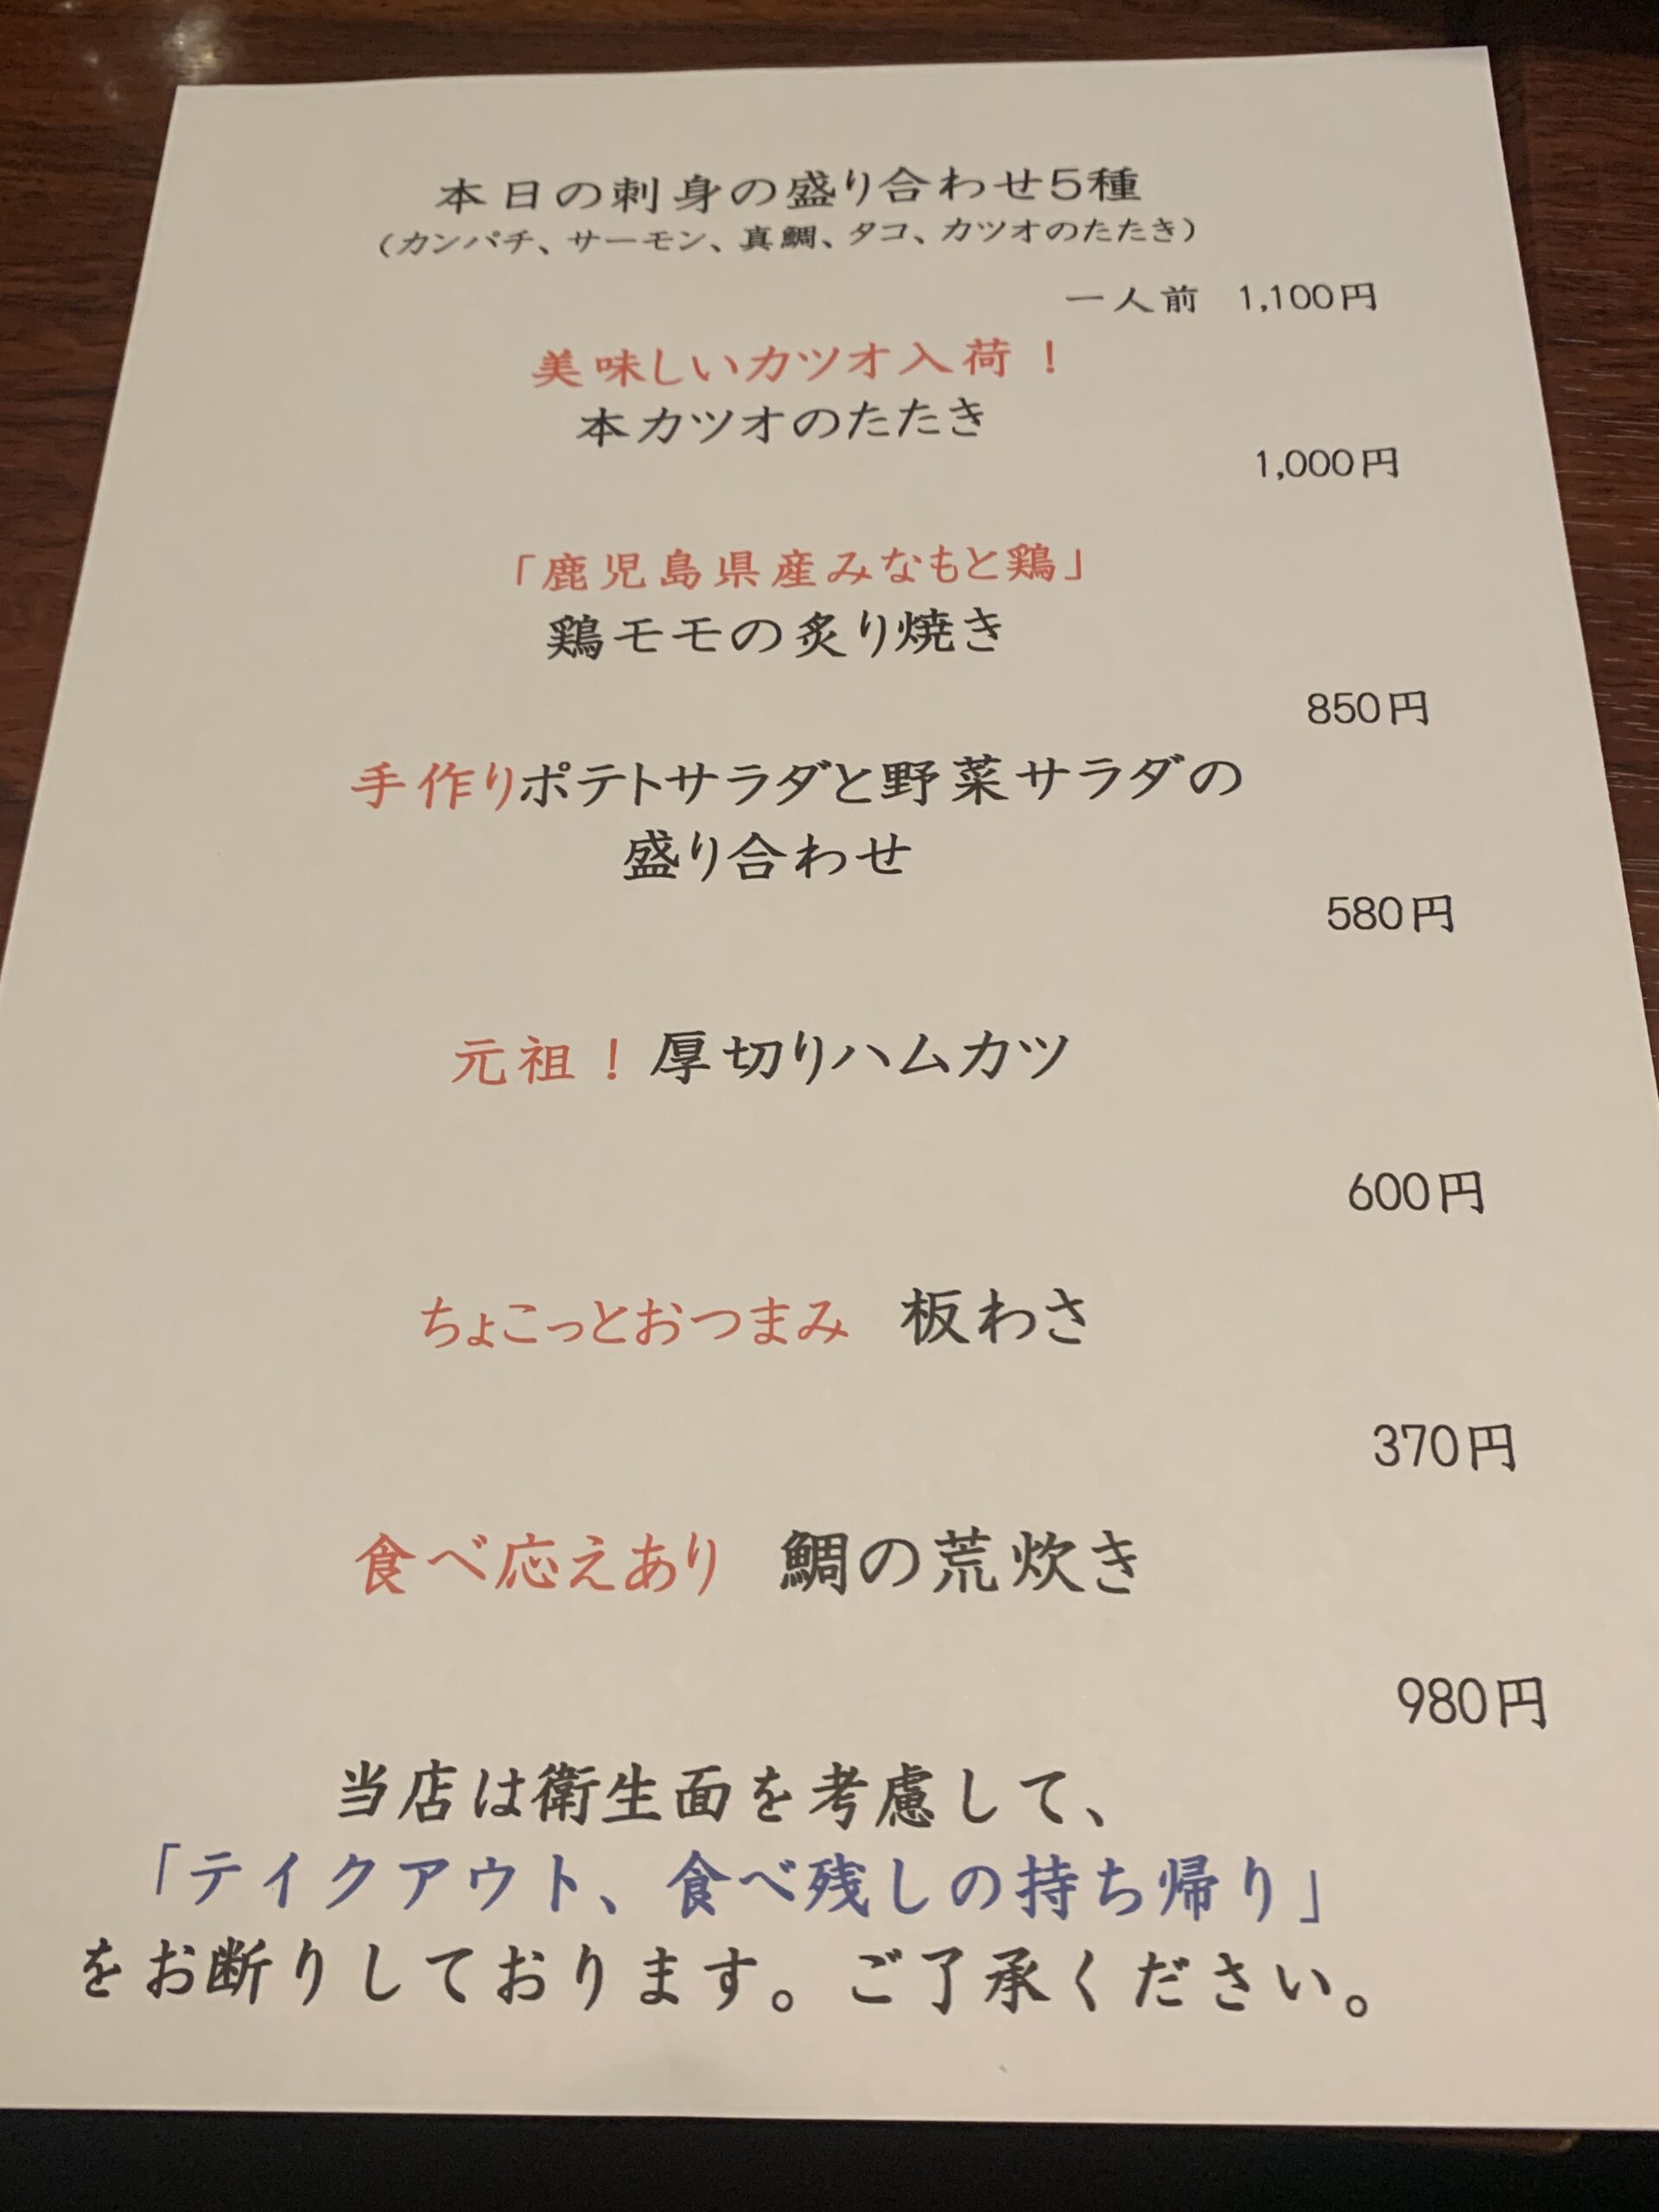 本日の刺身の盛り合わせ5種
（カンパチ、サーモン、真鯛、タコ、カツオのたたき）
一人前 1,100円
美味しいカツオ入荷！
本カツオのたたき
1,000円
「鹿児島県産みなもと鶏」
鶏モモの炙り焼き
850円
手作りポテトサラダと野菜サラダの
盛り合わせ
580円
元祖！厚切りハムカツ
600円
ちょこっとおつまみ 板わさ
370円
食べ応えあり 鯛の荒炊き
980円
当店は衛生面を考慮して、
「テイクアウト、食べ残しの持ち帰り」
をお断りしております。ご了承ください。